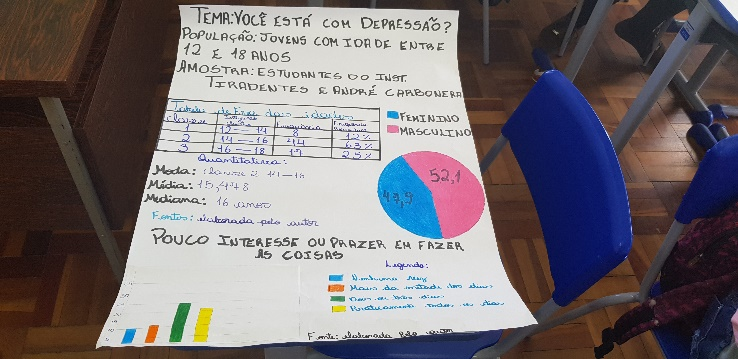 TEMA: VOCÊ ESTÁ COM DEPRESSÃO?
POPULAÇÃO: JOVENS COM IDADE ENTRE
12 E 18 ANOS
AMOSTRA: ESTUDANTES DO INST.
TIRADENTES E ANDRÉ CARBONERA
Tabela de das idades
classes
1 12—14 8 12%
2 14—16 44 63%
3 16—18 17 25%
FEMININO
MASCULINO
Quantitativa:
Moda: classe 2 14—16
Média: 15,478
Mediana: 16 anos
Fontes: elaborada pelo autor
52,1
47,9
POUCO INTERESSE OU PRAZER EM FAZER
AS COISAS
Legenda:
Nenhuma vez
Mais da metade dos dias
dias
Praticamente todos os dias
Fonte: elaborada pelo autor